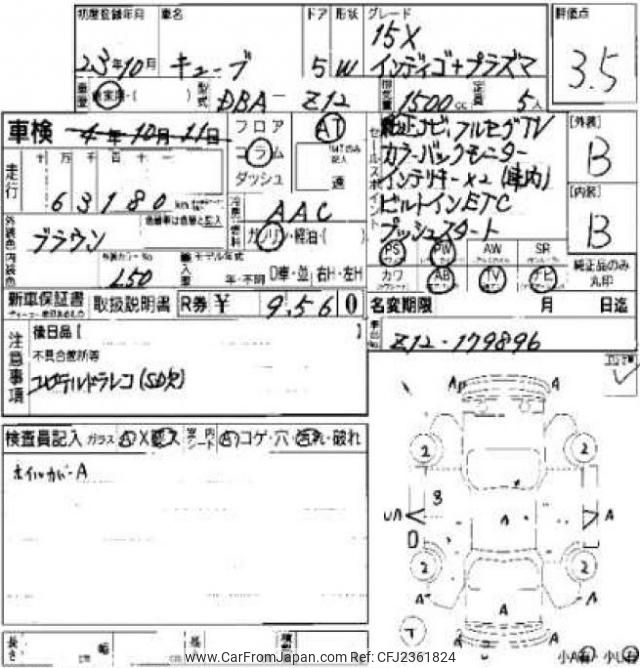 初度登録年月 車名 ドア 形状 グレード 評価点
23年10月 キューブ 5 W 15X
インディゴ+プラズマ 3.5
車歴 自家用・( ) 型式 DBA-Z12 排気量 1500cc 定員 5人
車検 4年10月11日 フロア AT
コラム
ダッシュ 速
走行 十万千百十一
63180 km
セールスポイント
純正ナビ,フルセグTV
カラーバックモニター
インテリキー×2(車内)
ビルトインETC
プッシュスタート
[外装] B
[内装] B
冷房 AAC
外装色 ブラウン
燃料 ガソリン・軽油・( )
内装色 外装カラーNo L50 輸入車 モデル年式 年・不明 D車・並 右H・左H
PS PW AW SR
カワ AB TV ナビ
純正品のみ丸印
新車保証書 取扱説明書 R券 ¥ 9,560
名変期限 月 日迄
車台No. Z12-179896
注意事項
後日品[ ]
不具合箇所等
コムテルドラレコ(SD欠)
検査員記入 ガラス A X 室内シート コゲ・穴・汚れ・破れ
ホイルカバーA
A A
2 2
8
UA A A
2 2
A A A
T A
長さ 幅 cm
小A 小
www.CarFromJapan.com Ref: CFJ2361824